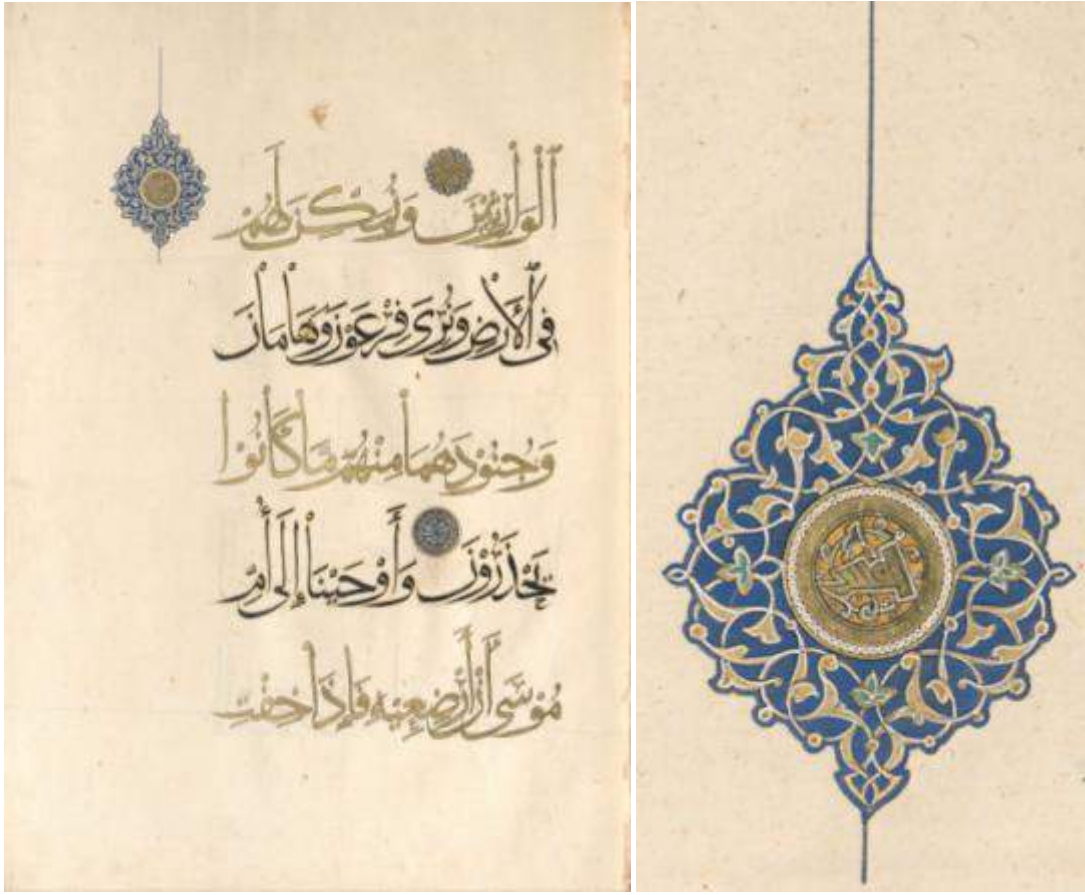 ٱلْوَارِثِينَ وَنُمَكِّنَ لَهُمْ
فِى ٱلْأَرْضِ وَنُرِىَ فِرْعَوْنَ وَهَامَانَ
وَجُنُودَهُمَا مِنْهُمْ مَا كَانُوا
يَحْذَرُونَ وَأَوْحَيْنَا إِلَى أُمِّ
مُوسَى أَنْ أَرْضِعِيهِ فَإِذَا خِفْتِ